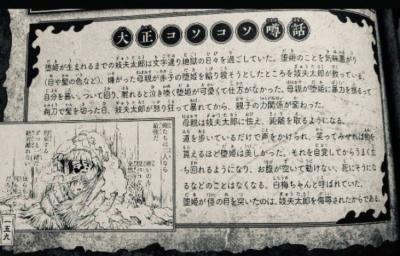 大正コソコソ噂話
堕姫が生まれるまでの妓夫太郎は文字通り地獄の日々を過ごしていた。堕姫のことを気味悪がり
(目や髪の色など)、嫌がった母親が赤子の堕姫を殺そうとしたところを妓夫太郎が救っている。
自分を慕い、ついて回り、離れると泣き喚く堕姫が可愛くて仕方がなかった。母親が堕姫に暴力を振るって
剃刀で髪を切った日、妓夫太郎が怒り狂って暴れてから、親子の力関係が変わった。
母親は妓夫太郎に怯え、距離を取るようになる。
道を歩いているだけで声をかけられ、笑ってみせれば物を
貰えるほど堕姫は美しかった。それを自覚してからうまく立
ち回れるようになり、お腹が空いて動けない、死にそうにな
るなどのことはなくなる。白梅ちゃんと呼ばれていた。
堕姫が侍の目を突いたのは、妓夫太郎を侮辱されたからである。
俺たちは二人なら
最強だ
一五九